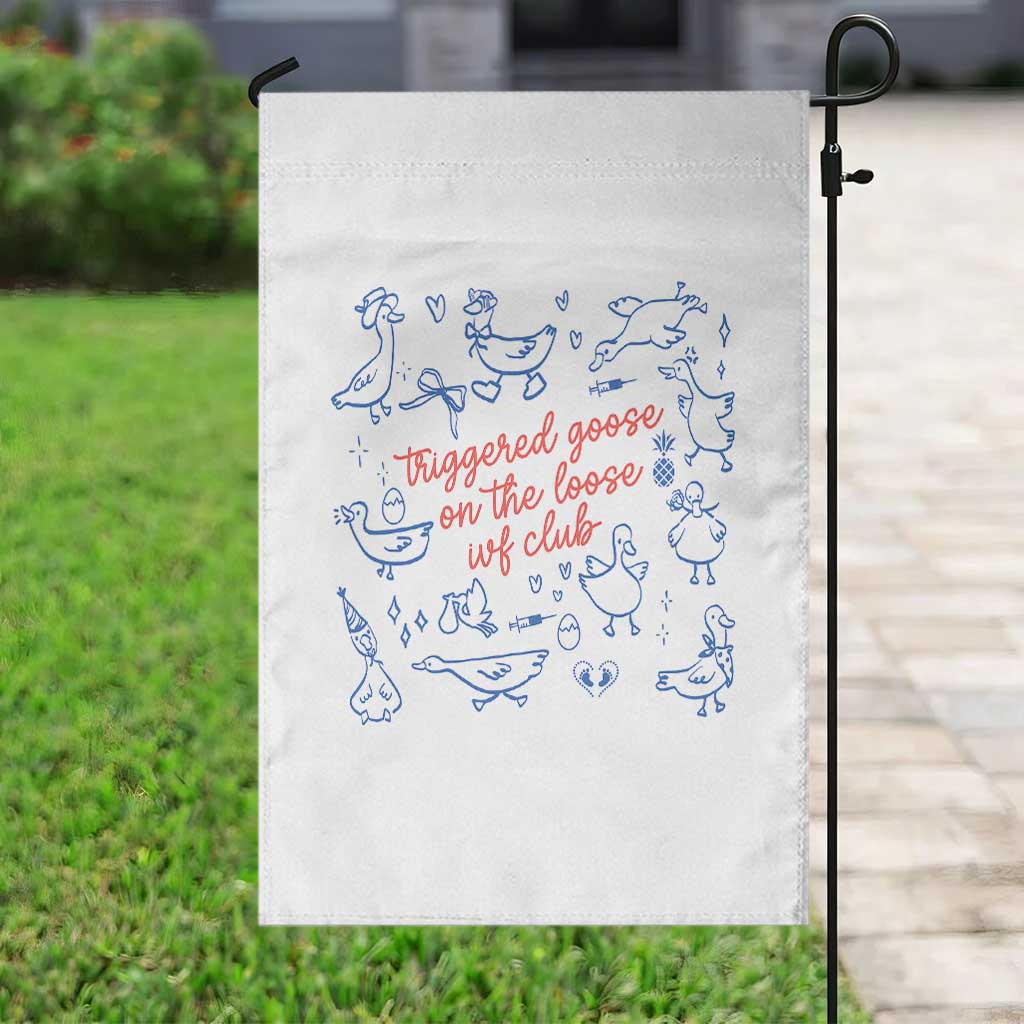 triggered goose
on the loose
ivf club